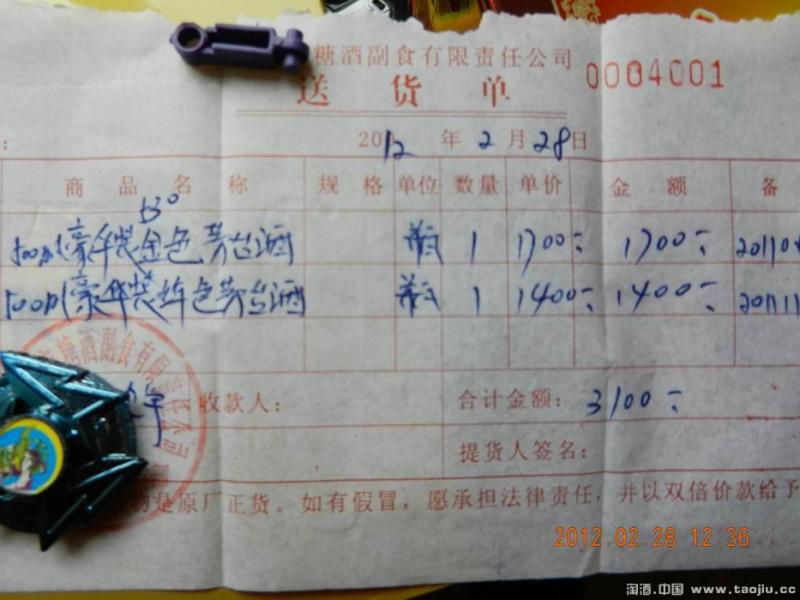 糖酒副食有限责任公司
送货单 0004001
2012年2月28日
商品名称 规格 单位 数量 单价 金额 备
53°
500ml豪华装金色茅台酒 瓶 1 1700 1700 201104
500ml豪华装 色茅台酒 瓶 1 1400 1400 201111
糖酒副食有限责任公司
收款人: 合计金额: 3100
提货人签名:
是原厂正货。如有假冒,愿承担法律责任,并以双倍价款给予
2012.02.28 12:36
淘酒.中国 www.taojiu.cc